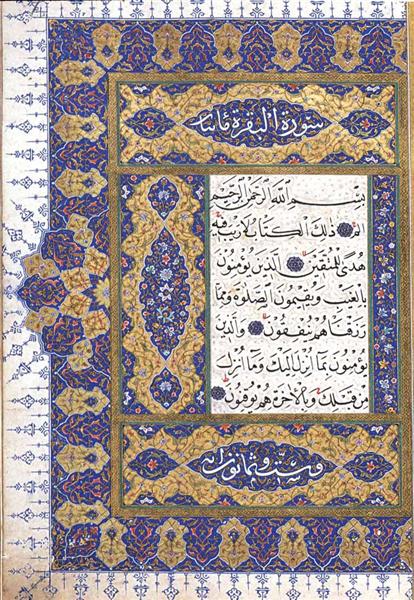 سورة البقرة مائتا
بِسْمِ اللَّهِ الرَّحْمَنِ الرَّحِيمِ
الم ذَلِكَ الْكِتَابُ لَا رَيْبَ فِيهِ
هُدًى لِلْمُتَّقِينَ الَّذِينَ يُؤْمِنُونَ
بِالْغَيْبِ وَيُقِيمُونَ الصَّلٰوةَ وَمِمَّا
رَزَقْنَاهُمْ يُنْفِقُونَ وَالَّذِينَ
يُؤْمِنُونَ بِمَا أُنْزِلَ إِلَيْكَ وَمَا أُنْزِلَ
مِنْ قَبْلِكَ وَبِالْآخِرَةِ هُمْ يُوقِنُونَ
وست وثمانون